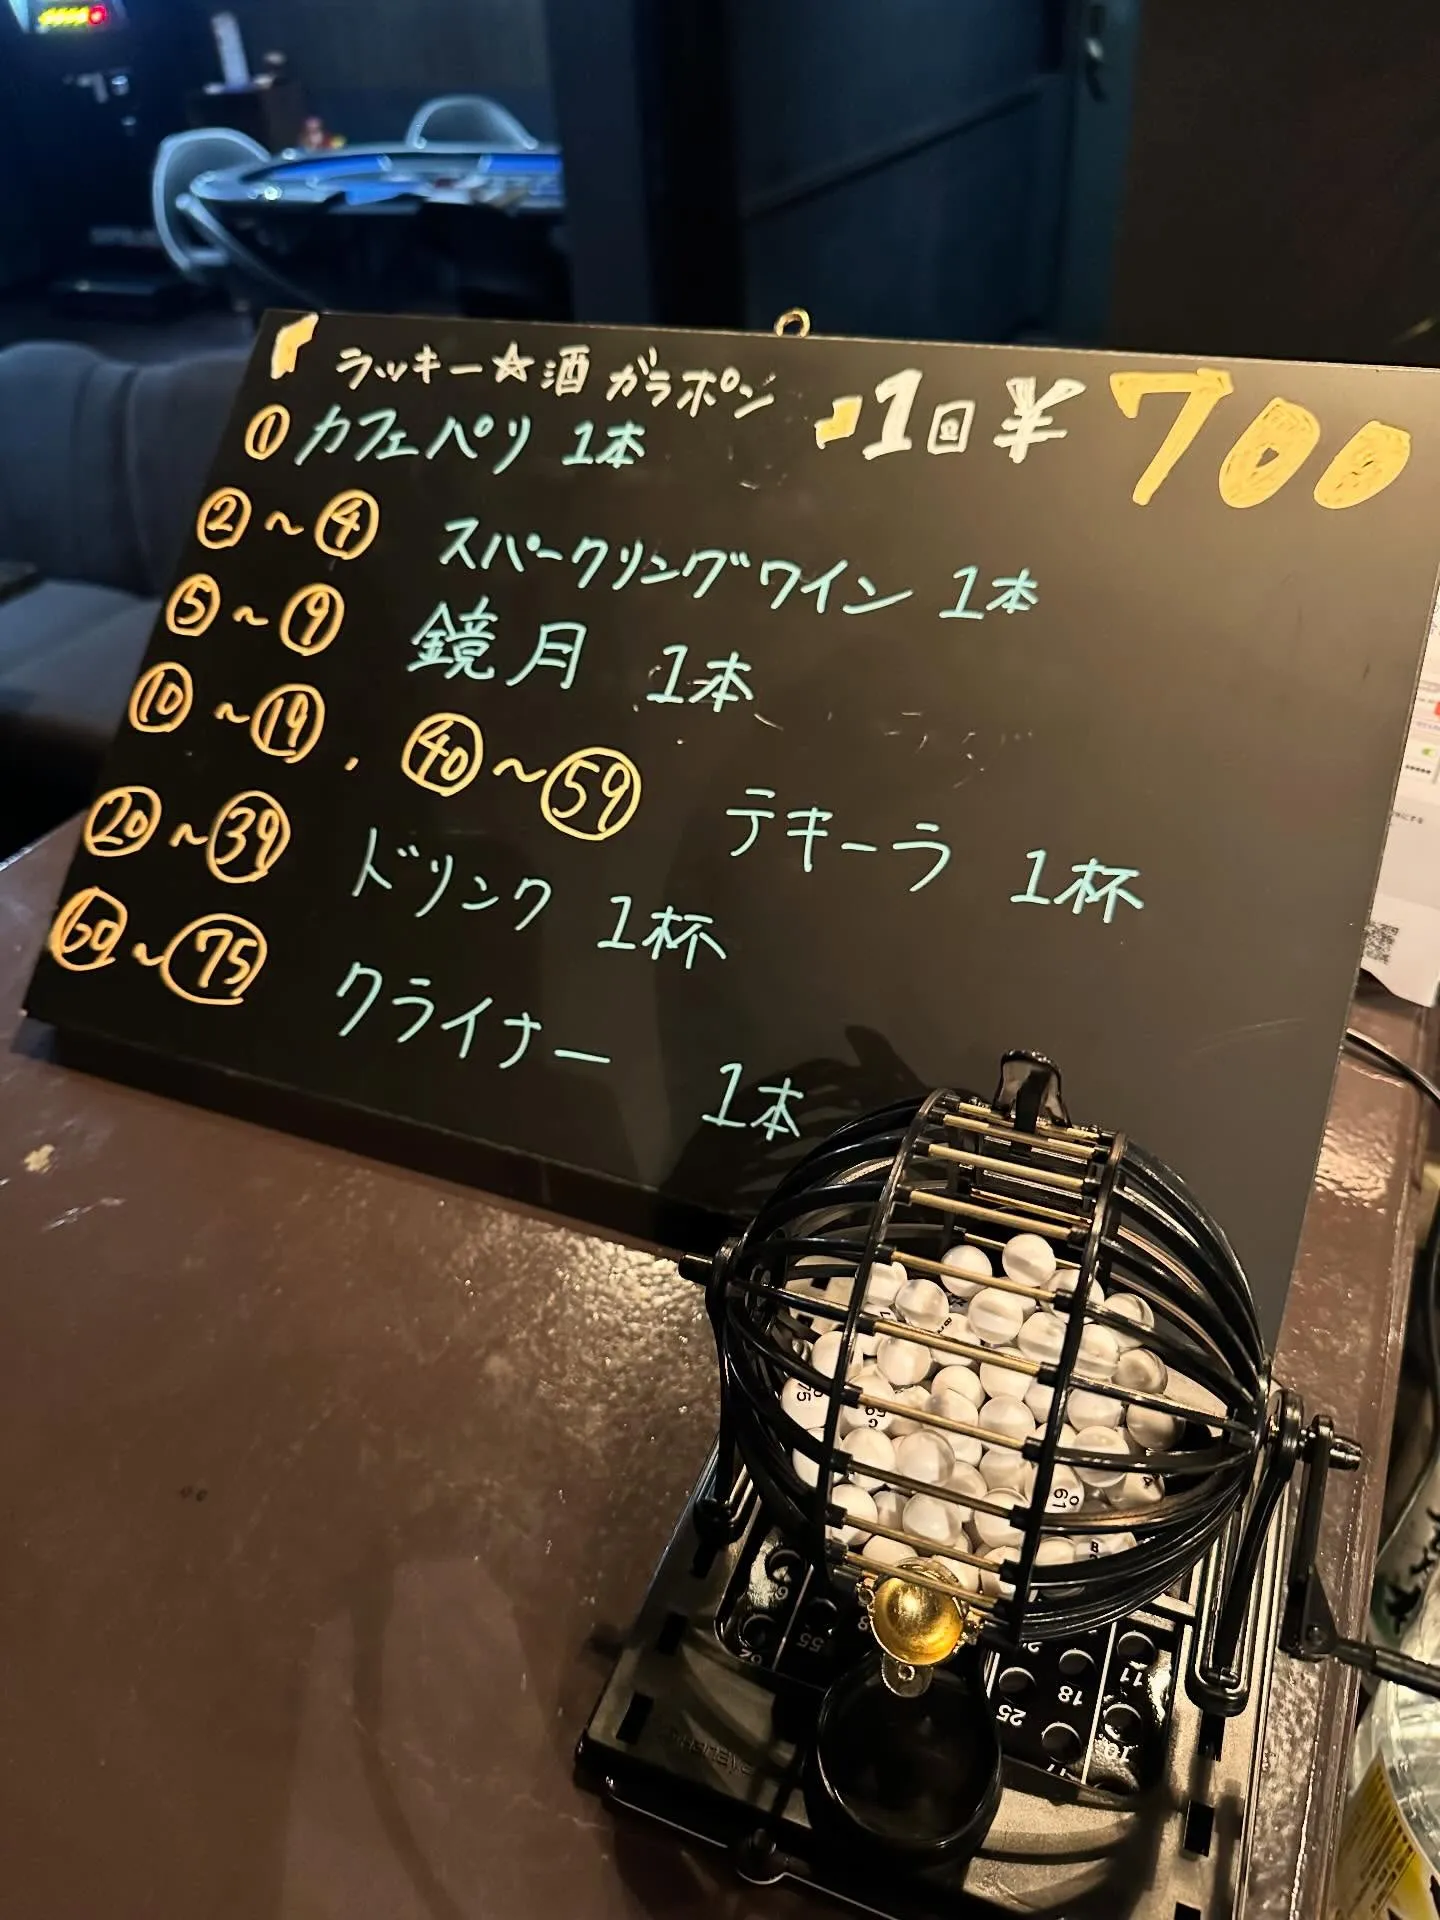 ラッキー☆酒 ガラポン 1回 ¥700
① カフェパリ 1本
②～④ スパークリングワイン 1本
⑤～⑨ 鏡月 1本
⑩～⑲、㊵～59 テキーラ 1杯
⑳～㊴ ドリンク 1杯
60～75 クライナー 1本
75
61
62
55
25
18
11
10